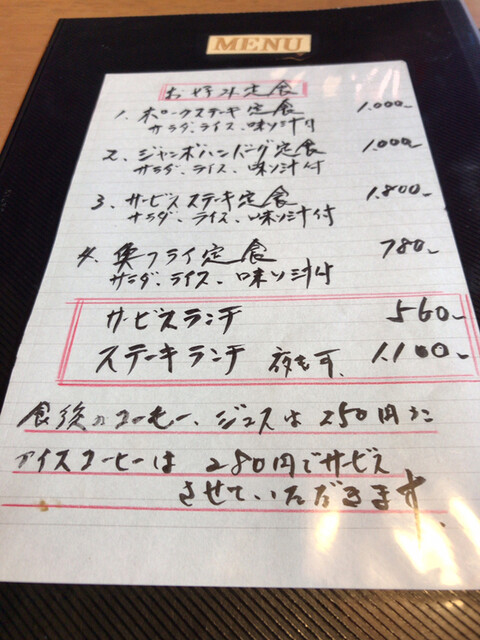 MENU
お好み定食
1. ポークステーキ定食 1,000-
サラダ、ライス、味ソ汁付
2. ジャンボハンバーグ定食 1,000-
サラダ、ライス、味ソ汁付
3. サービスステーキ定食 1,800-
サラダ、ライス、味ソ汁付
4. 魚フライ定食 780-
サラダ、ライス、味ソ汁付
サービスランチ 560-
ステーキランチ 夜も可、 1,100-
食後のコーヒー、ジュースは 250円に
アイスコーヒーは 280円でサービス
させていただきます。